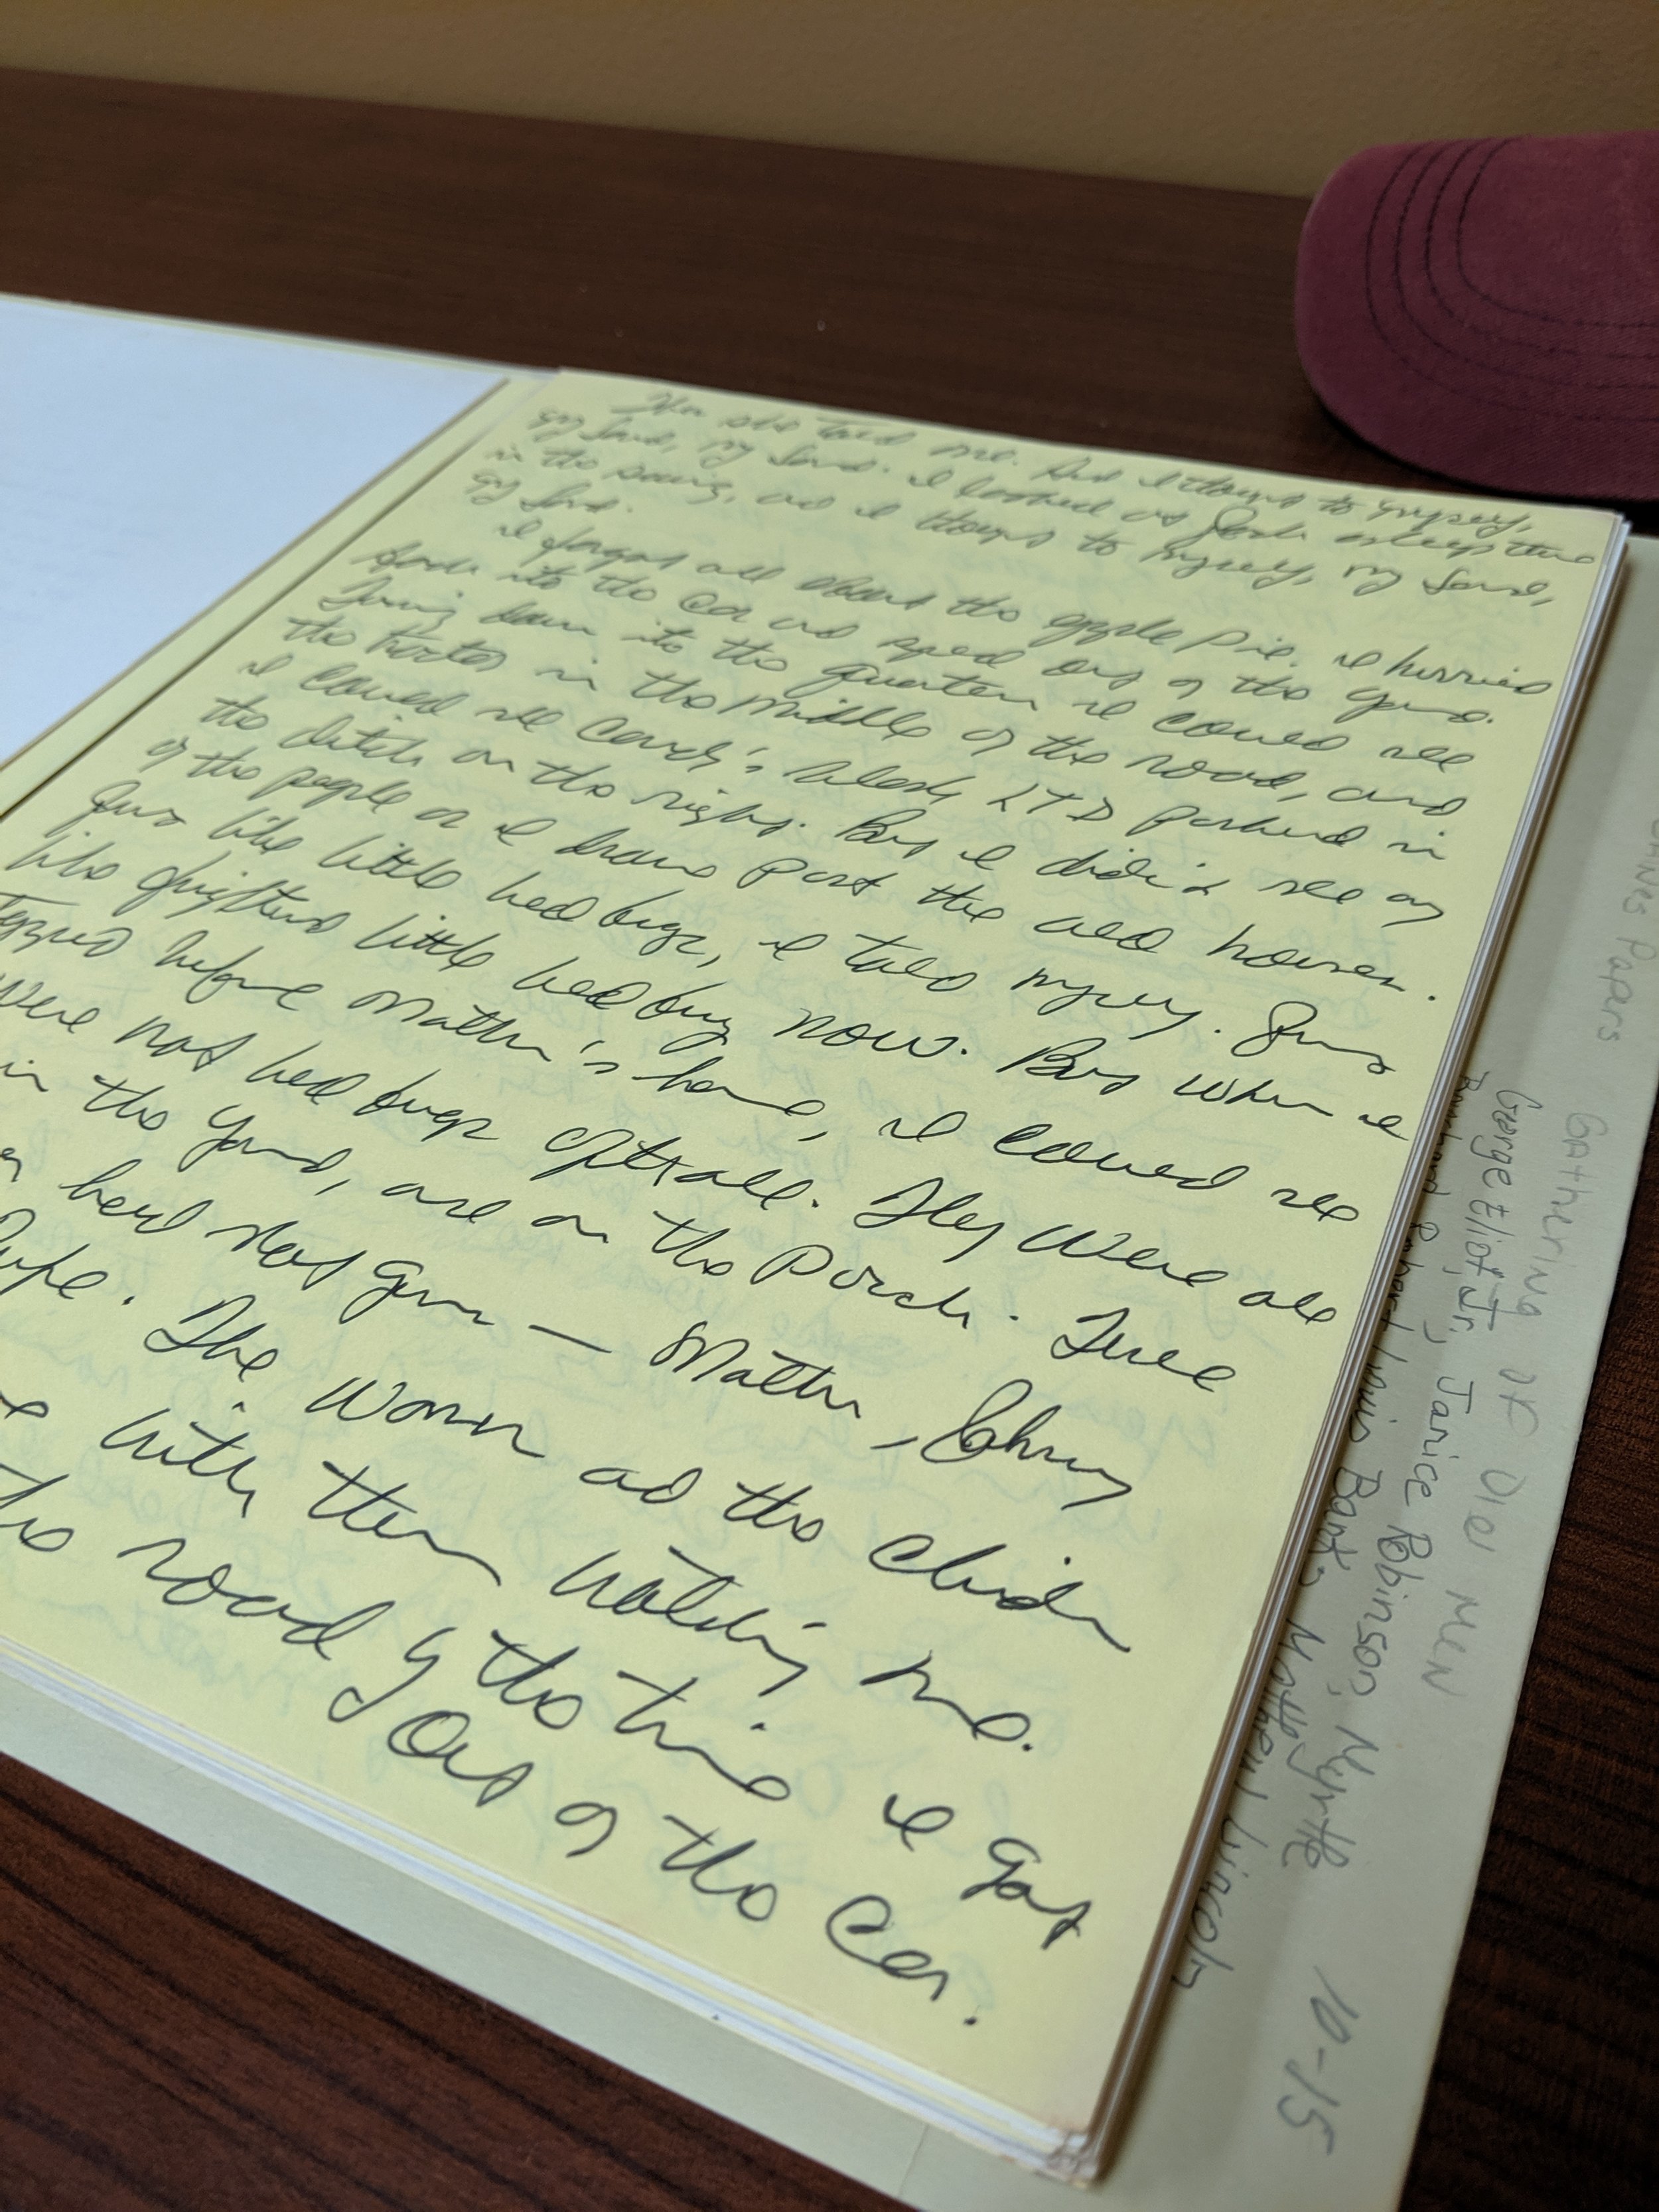 Then she told me. And I thought to myself,
my Lord, my Lord. I looked at Snookum asleep there
in the swing, and I thought to myself, my Lord,
my Lord.
I forgot all about the apple pie. I hurried
back into the car and sped out of the yard.
Turning down into the quarters I could see
the tractor in the middle of the road, and
I could see Candy's black LTD parked in
the ditch on the right. But I didn't see any
of the people as I drove past the old houses.
Just like little bedbugs, I told myself. Just
like frightened little bedbugs now. But when I
stopped before Mathu's house, I could see
were not bedbugs after all. They were all
in the yard, and on the porch. Three
had shotguns — Mathu, Johnny
Rufe. The women and the children
with them watching me.
the road by the time I got
out of the car.
Gaines Papers
Gathering of Old Men
George Eliot, Jr., Janice Robinson, Myrtle
Bouchard, Robert Louis Banks, Matthew Lincoln
10-15